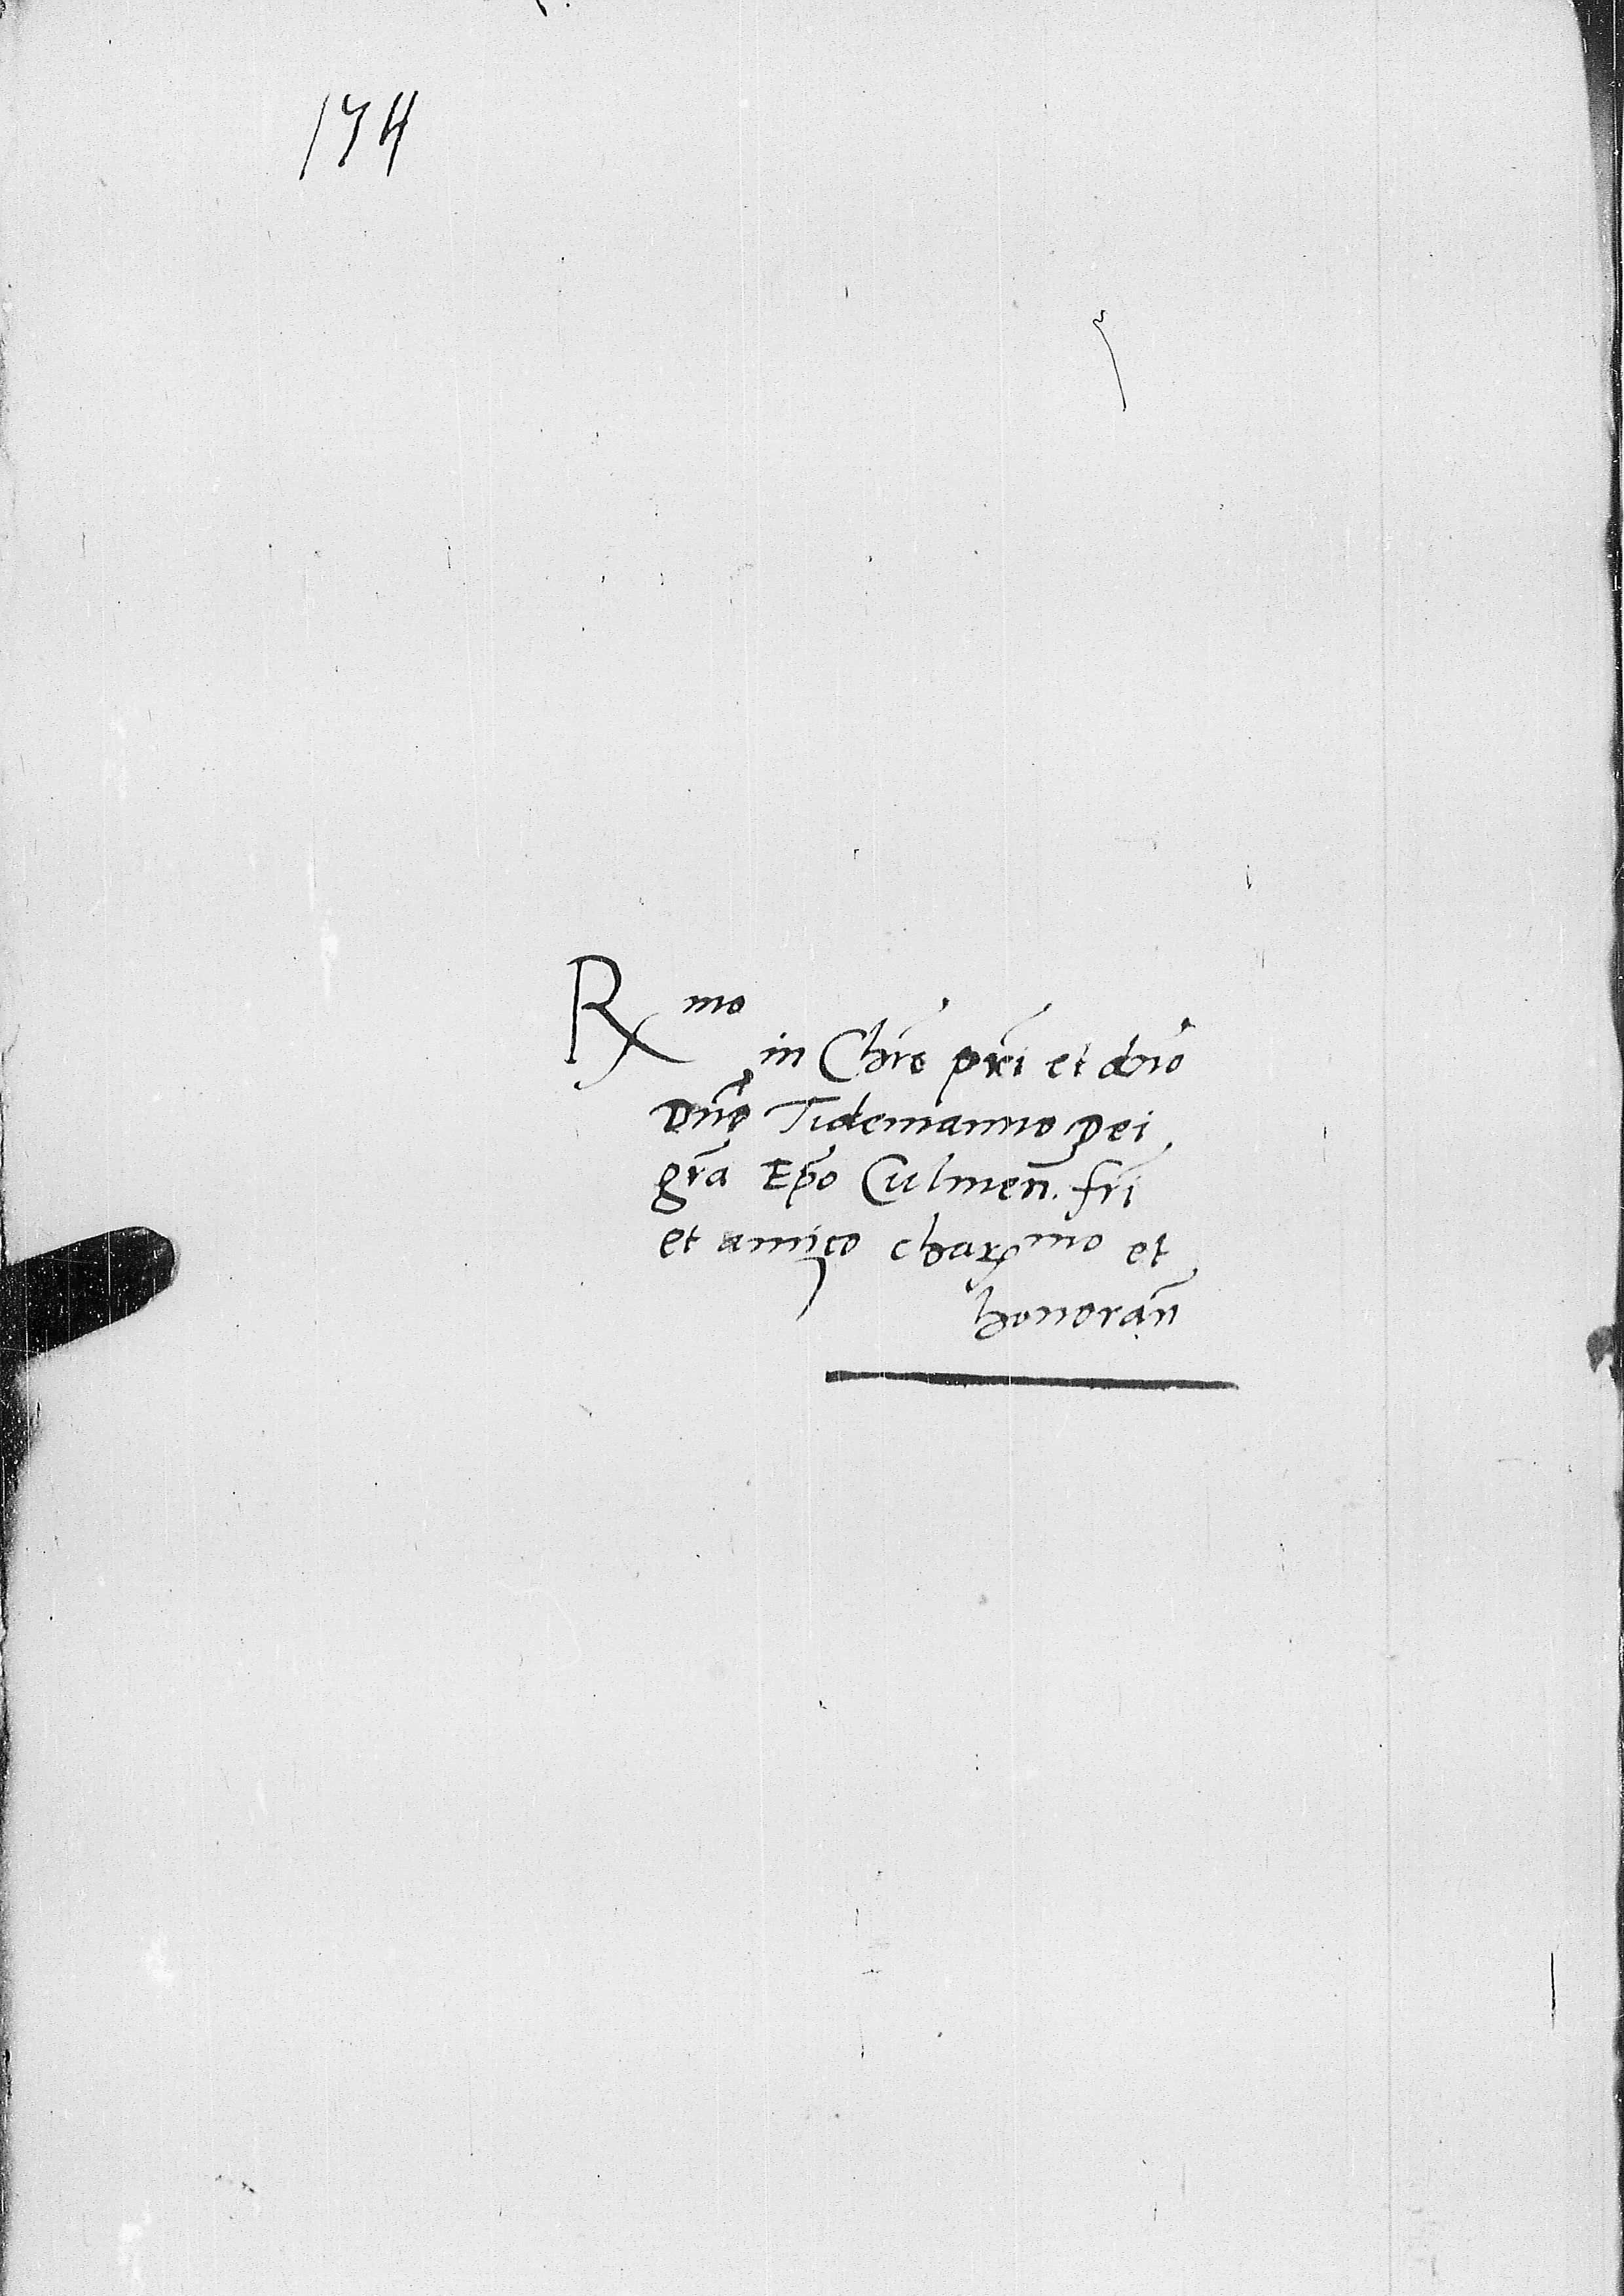 174
R mo
in Chro pri et dno
Dno Tidemanno Dei
gra Epo Culmen. fri
et amico char mo et
honoran